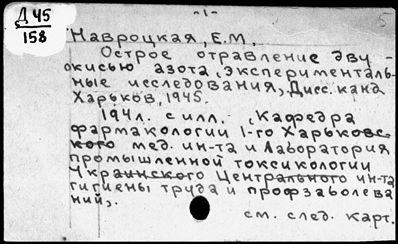 Д 45
158
-1-
5
Навроцкая, Е.М.
Острое отравление дву-
окисью азота, эксперименталь-
ные исследования, Дисс. канд
Харьков, 1945.
194л. с илл. (Кафедра
фармакологии 1-го Харьковс-
кого мед. ин-та и Лаборатория
промышленной токсикологии
Украинского Центрального ин-та
гигиены труда и профзаболева
ний).
см. след. карт.